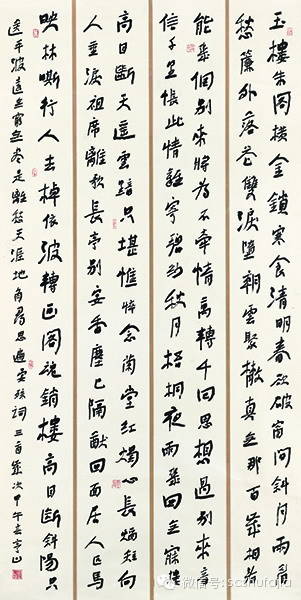 玉樓朱閣橫金鎖寒食清明春欲破窗間斜月兩眉
愁簾外落花雙淚墮朝雲聚散真無那百歲相看
能幾個別來將為不牽情萬轉千回思想過別來音
信千里悵此情難寄碧紗秋月梧桐夜雨幾回無寐樓
高目斷天遙雲黯只堪憔悴念蘭堂紅燭心長焰短向
人垂淚祖席離歌長亭別宴香塵已隔猶回面居人匹馬
映林嘶行人去棹依波轉画閣魂銷樓高目斷斜陽只
送平波遠無窮無盡是離愁天涯地角尋思遍晏殊詞三首歲次甲午春
微信号: